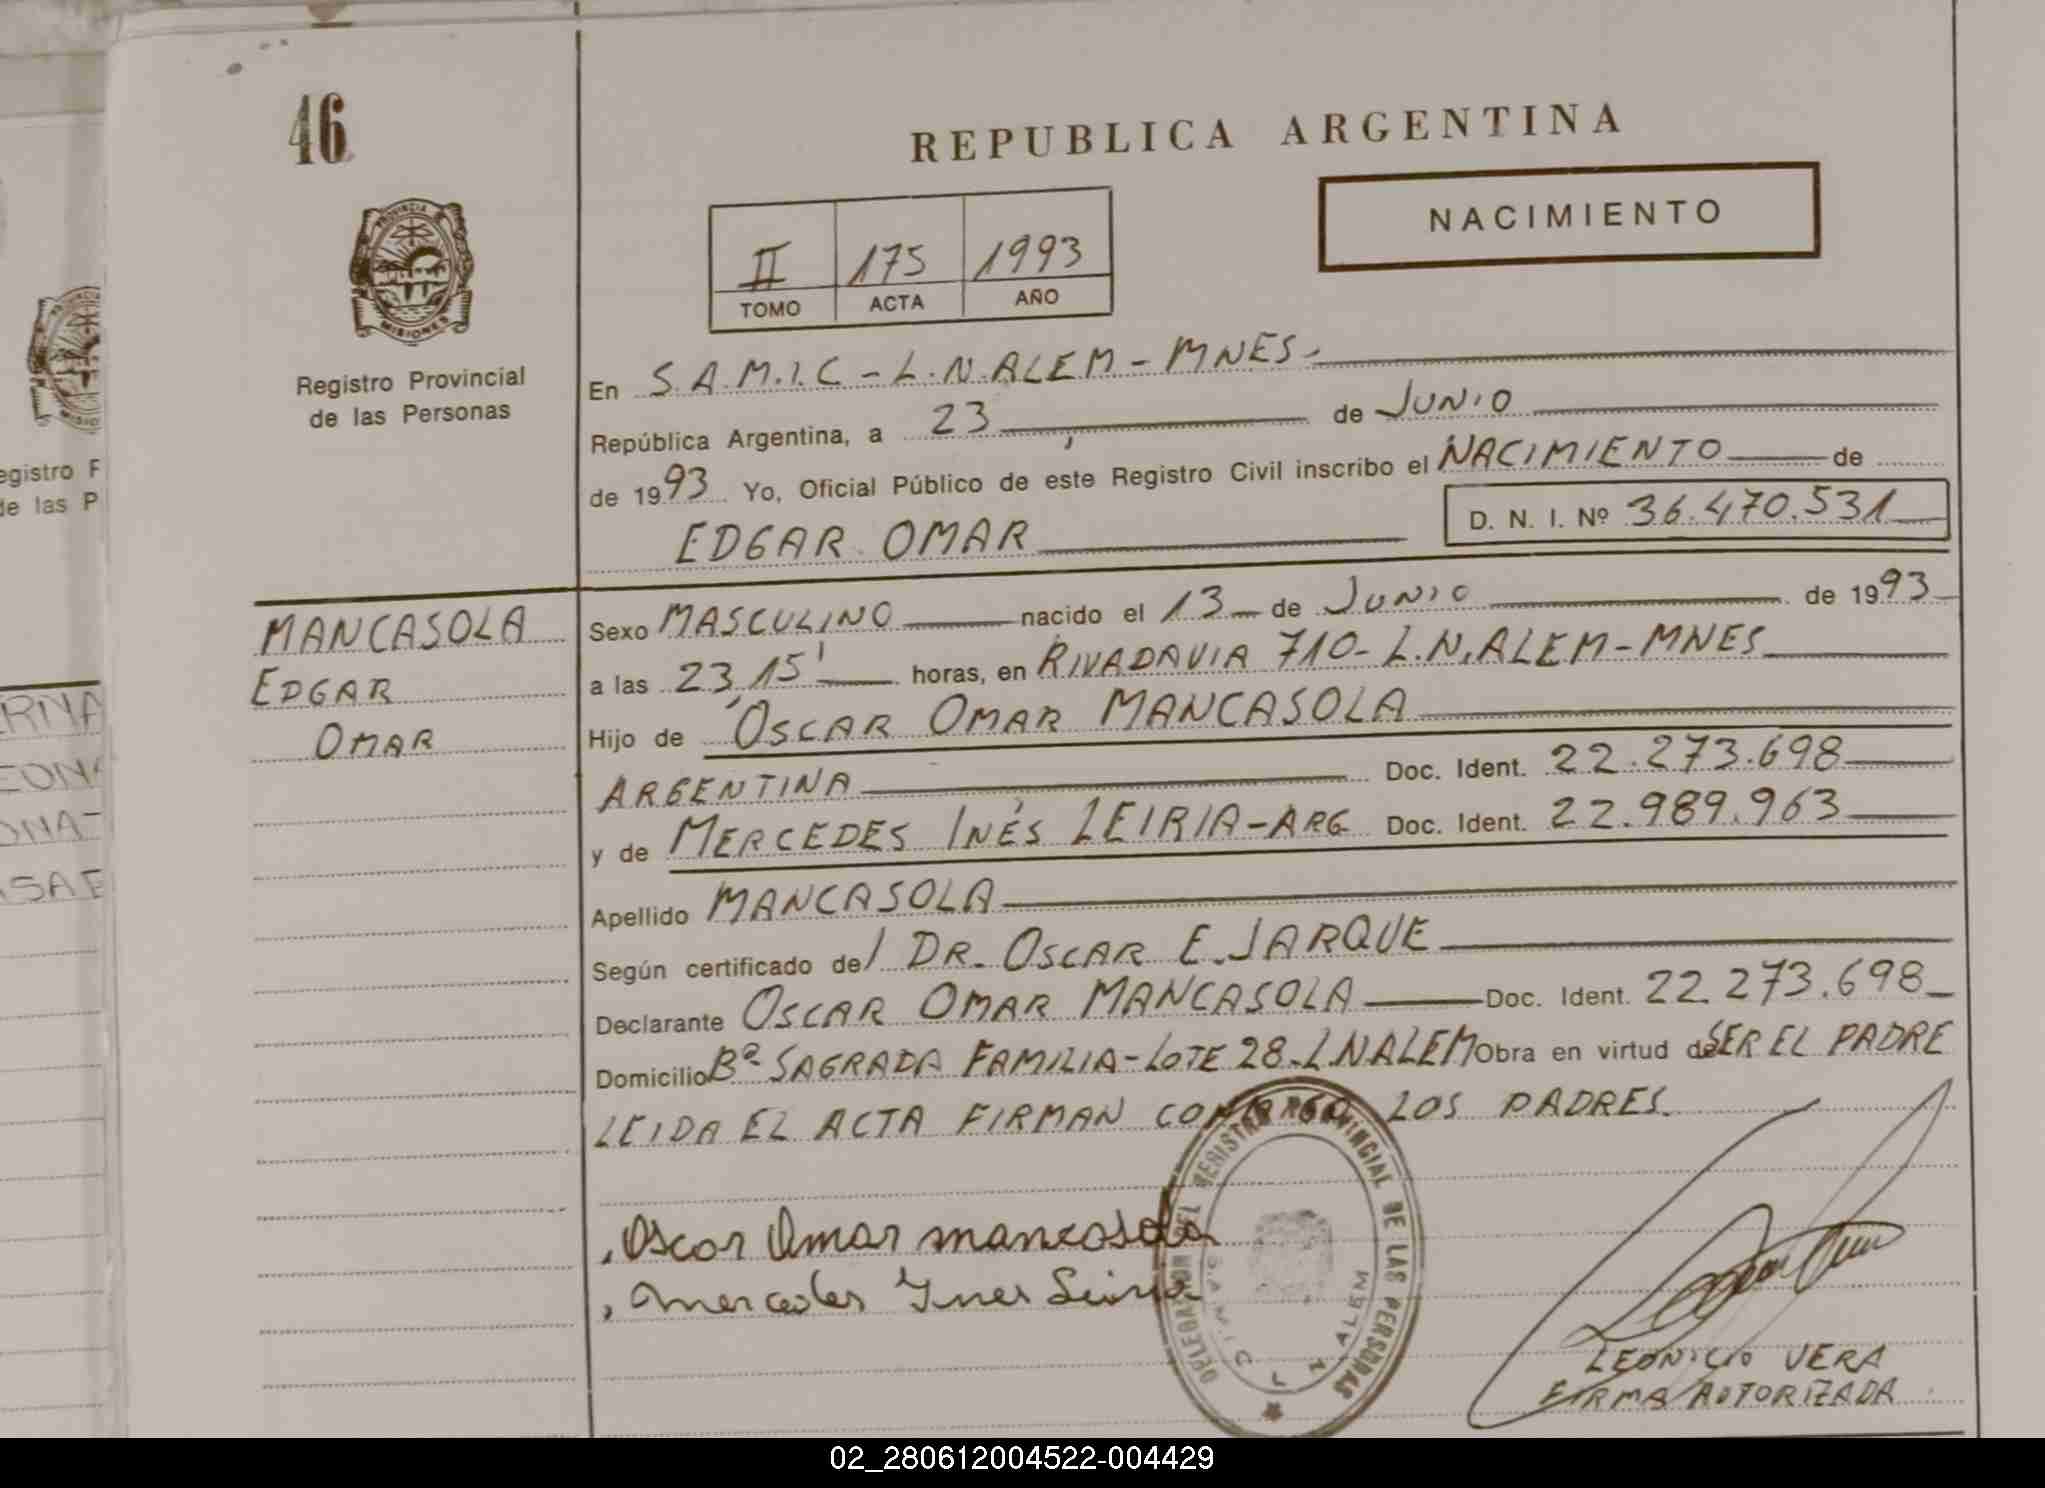 46
REPUBLICA ARGENTINA
NACIMIENTO
II 175 1993
TOMO ACTA AÑO
PROVINCIA DE
MISIONES
Registro Provincial
de las Personas
En S.A.M.I.C - L.N.ALEM - MNES.
República Argentina, a 23 de JUNIO
de 1993 Yo, Oficial Público de éste Registro Civil inscribo el NACIMIENTO de
EDGAR OMAR D. N. I. Nº 36.470.531
MANCASOLA
EDGAR
OMAR
Sexo MASCULINO nacido el 13 de JUNIO de 1993
a las 23,15' horas, en RIVADAVIA 710- L.N.ALEM-MNES
Hijo de OSCAR OMAR MANCASOLA
ARGENTINA Doc. Ident. 22.273.698
y de MERCEDES INÉS LEIRIA-ARG Doc. Ident. 22.989.963
Apellido MANCASOLA
Según certificado del DR. OSCAR E. JARQUE
Declarante OSCAR OMAR MANCASOLA Doc. Ident. 22.273.698
Domicilio Bº SAGRADA FAMILIA-LOTE 28-L.N.ALEM Obra en virtud de SER EL PADRE
LEIDA EL ACTA FIRMAN CONMIGO LOS PADRES.
Oscar Omar mancasola
mercedes Ynes Leiria
DELEGACION DEL REGISTRO PROVINCIAL DE LAS PERSONAS
S.A.M.I.C L N ALEM
LEONICIO VERA
FIRMA AUTORIZADA
egistro P
de las P
ERNA
ASAE
02_280612004522-004429